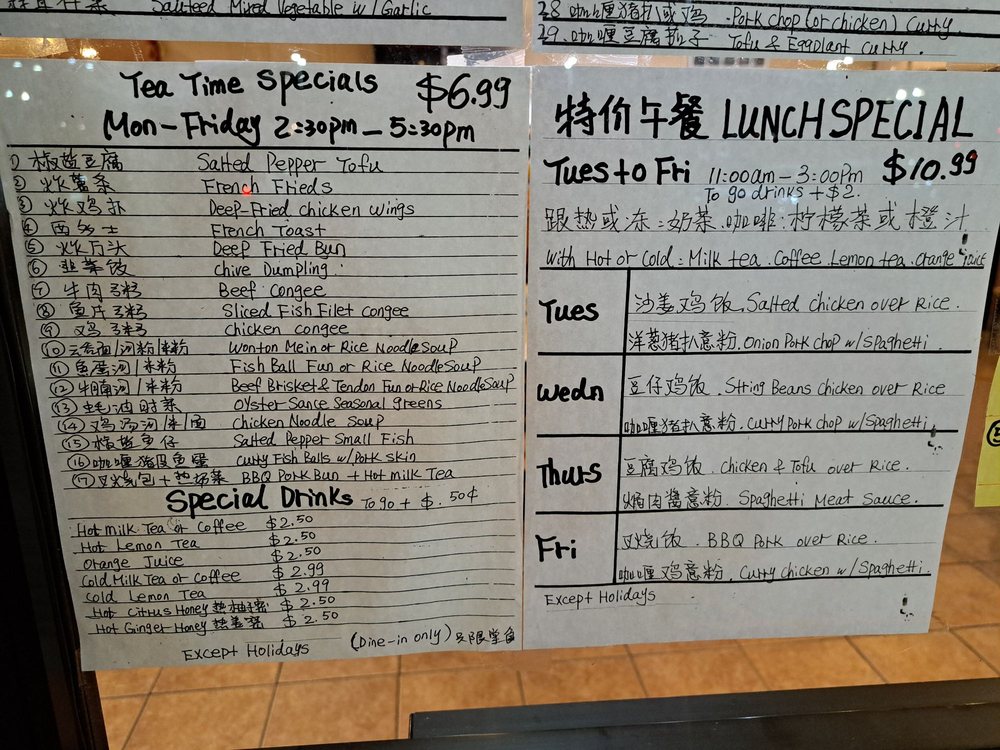 Sauteed Mixed Vegetable w/Garlic
28 咖喱猪扒或鸡 . Pork chop (or chicken) Curry
29. 咖喱豆腐茄子 Tofu & Eggplant Curry.
Tea Time Specials $6.99
Mon-Friday 2:30pm-5:30pm
① 椒盐豆腐 Salted Pepper Tofu
② 炸薯条 French Frieds
③ 炸鸡扑 Deep-Fried chicken wings
④ 西多士 French Toast
⑤ 炸万头 Deep Fried Bun
⑥ 韭菜饺 Chive Dumpling
⑦ 牛肉粥 Beef congee
⑧ 鱼片粥 Sliced Fish Filet congee
⑨ 鸡粥 chicken congee
⑩ 云吞面/河粉/米粉 Wonton Mein or Rice Noodle Soup
⑪ 鱼蛋河/米粉 Fish Ball Fun or Rice Noodle Soup
⑫ 牛腩河/米粉 Beef Brisket & Tendon Fun or Rice Noodle Soup
⑬ 蚝油时菜 Oyster Sance Seasonal greens
⑭ 鸡汤河/米/面 Chicken Noodle Soup
⑮ 椒盐鱼仔 Salted Pepper Small Fish
⑯ 咖喱猪皮鱼蛋 Curry Fish Balls w/Pork skin
⑰ 叉烧包+热奶茶 BBQ Pork Bun + Hot milk Tea
Special Drinks To go + $ .50¢
Hot Milk Tea or Coffee $2.50
Hot Lemon Tea $2.50
Orange Juice $2.50
Cold Milk Tea or Coffee $2.99
Cold Lemon Tea $2.99
Hot Citrus Honey 热柚子蜜 $2.50
Hot Ginger Honey 热姜蜜 $2.50
(Dine-in only) 只限堂食
Except Holidays
特价午餐 LUNCH SPECIAL
Tues to Fri 11:00am-3:00pm $10.99
To go drinks + $2.
跟热或冻:奶茶.咖啡.柠檬茶或橙汁
with Hot or Cold: Milk tea. Coffee. Lemon tea. Orange juice
Tues 沙姜鸡饭. Salted chicken over Rice.
洋葱猪扒意粉. Onion Pork chop w/Spaghetti
Wedn 豆仔鸡饭. String Beans chicken over Rice
咖喱猪扒意粉. Curry Pork chop w/Spaghetti.
Thurs 豆腐鸡饭. chicken & Tofu over Rice.
焗肉酱意粉 Spaghetti Meat Sauce.
Fri 叉烧饭. BBQ Pork over Rice.
咖喱鸡意粉. Curry chicken w/Spaghetti.
Except Holidays